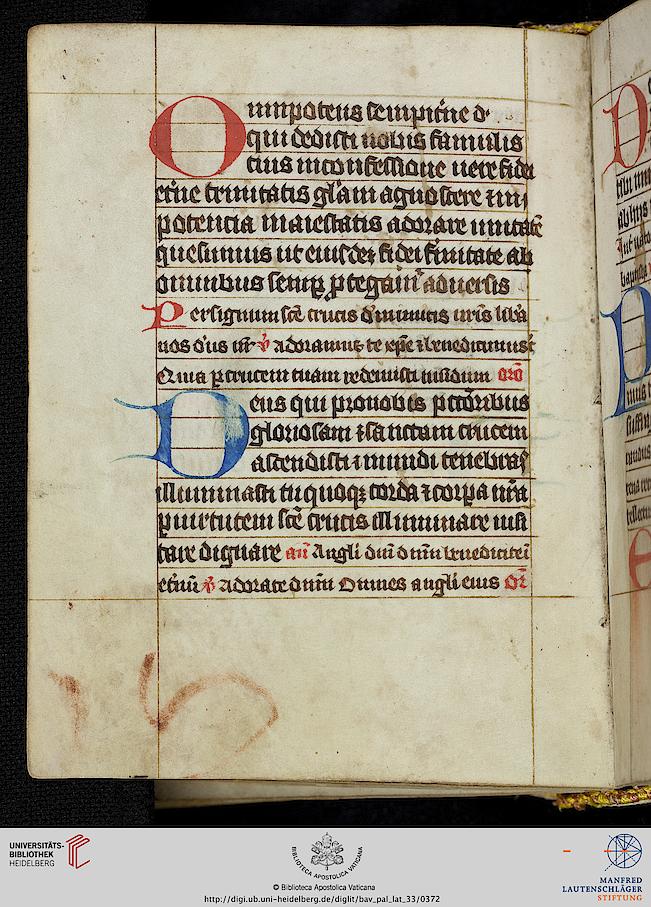 Omnipotens sempit̄ne d̄
qui dedisti nobis famulis
tuis in confessione uere fidei
et̄ne trinitatis gl̄am agnoscere ⁊ in
potencia maiestatis adorare unitatē
quesumus ut eiusdeʒ fidei firmitate ab
omnibus semꝑ ꝓtegam̄ aduersis
Per signum scē crucis
nos d'us nr̄ ꝟ adoramus te xp̄e ⁊ benedicimus t
Quia ꝑ crucem tuam redemisti mūdum orō
Deus qui pro nobis pccōribus
gloriosam ⁊ sanctam crucem
ascendisti ⁊ mundi tenebras
illuminasti tu quoqꝫ corda ⁊ corpa nr̄a
ꝑ uirtutem scē crucis illuminare
tare dignare an̄ Angli dn̄i dnm̄ benedicite
et̄nū ꝟ Adorate dnm̄ Omnes angli eius or̄
UNIVERSITÄTS-
BIBLIOTHEK
HEIDELBERG
BIBLIOTECA APOSTOLICA VATICANA
© Biblioteca Apostolica Vaticana
http://digi.ub.uni-heidelberg.de/diglit/bav_pal_lat_33/0372
MANFRED
LAUTENSCHLÄGER
STIFTUNG